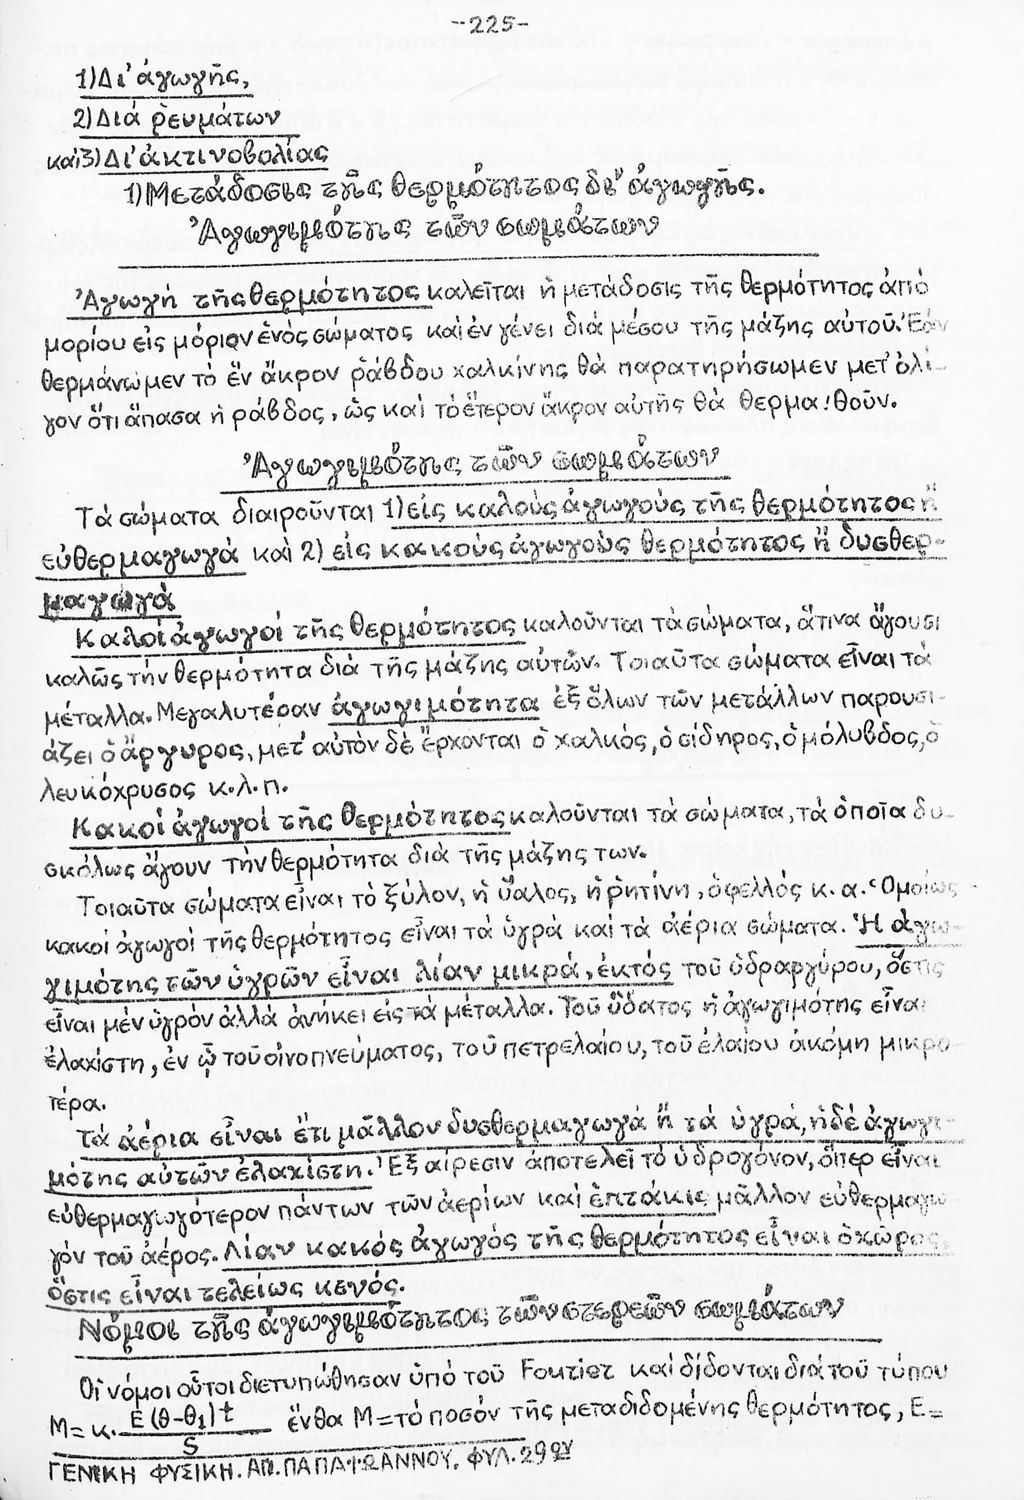 -225-
1)Δι' ἀγωγῆς,
2)Διά ρευμάτων
καί3)Δι'ἀκτινοβολίας
1)Μετάδοσις τῆς θερμότητος δι' ἀγωγῆς.
Ἀγωγιμότης τῶν σωμάτων
Ἀγωγή τῆς θερμότητος καλεῖται ἡ μετάδοσις τῆς θερμότητος ἀπό
μορίου εἰς μόριον ἑνός σώματος καί ἐν γένει διά μέσου τῆς μάζης αὐτοῦ. Ἐάν
θερμάνωμεν τό ἕν ἄκρον ράβδου χαλκίνης θά παρατηρήσωμεν μετ' ὀλί-
γον ὅτι ἅπασα ἡ ράβδος, ὡς καί τό ἕτερον ἄκρον αὐτῆς θά θερμαθοῦν.
Ἀγωγιμότης τῶν σωμάτων
Τά σώματα διαιροῦνται 1)εἰς καλούς ἀγωγούς τῆς θερμότητος ἤ
εὐθερμαγωγά καί 2) εἰς κακούς ἀγωγούς θερμότητος ἤ δυσθερ-
μαγωγά
Καλοί ἀγωγοί τῆς θερμότητος καλοῦνται τά σώματα, ἅτινα ἄγουσι
καλῶς τήν θερμότητα διά τῆς μάζης αὐτῶν. Τοιαῦτα σώματα εἶναι τά
μέταλλα. Μεγαλυτέραν ἀγωγιμότητα ἐξ ὅλων τῶν μετάλλων παρουσι-
άζει ὁ ἄργυρος, μετ' αὐτόν δέ ἔρχονται ὁ χαλκός, ὁ σίδηρος, ὁ μόλυβδος, ὁ
λευκόχρυσος κ.λ.π.
Κακοί ἀγωγοί τῆς θερμότητος καλοῦνται τά σώματα, τά ὁποῖα δυ-
σκόλως ἄγουν τήν θερμότητα διά τῆς μάζης των.
Τοιαῦτα σώματα εἶναι τό ξύλον, ἡ ὕαλος, ἡ ρητίνη, ὁ φελλός κ.α. Ὁμοίως
κακοί ἀγωγοί τῆς θερμότητος εἶναι τά ὑγρά καί τά ἀέρια σώματα. Ἡ ἀγω-
γιμότης τῶν ὑγρῶν εἶναι λίαν μικρά, ἐκτός τοῦ ὑδραργύρου, ὅστις
εἶναι μέν ὑγρόν ἀλλά ἀνήκει εἰς τά μέταλλα. Τοῦ ὕδατος ἡ ἀγωγιμότης εἶναι
ἐλαχίστη, ἐν ᾧ τοῦ οἰνοπνεύματος, τοῦ πετρελαίου, τοῦ ἐλαίου ἀκόμη μικρο-
τέρα.
Τά ἀέρια εἶναι ἔτι μᾶλλον δυσθερμαγωγά ἤ τά ὑγρά, ἡ δέ ἀγωγι-
μότης αὐτῶν ἐλαχίστη. Ἐξαίρεσιν ἀποτελεῖ τό ὑδρογόνον, ὅπερ εἶναι
εὐθερμαγωγότερον πάντων τῶν ἀερίων καί ἑπτάκις μᾶλλον εὐθερμαγω-
γόν τοῦ ἀέρος. Λίαν κακός ἀγωγός τῆς θερμότητος εἶναι ὁ χῶρος,
ὅστις εἶναι τελείως κενός.
Νόμοι τῆς ἀγωγιμότητος τῶν στερεῶν σωμάτων
Οἱ νόμοι οὗτοι διετυπώθησαν ὑπό τοῦ Fourier καί δίδονται διά τοῦ τύπου
M= κ. E(θ-θ1)t / S ἔνθα M=τό ποσόν τῆς μεταδιδομένης θερμότητος, E=
ΓΕΝΙΚΗ ΦΥΣΙΚΗ. ΑΠ. ΠΑΠΑΪΩΑΝΝΟΥ. ΦΥΛ. 29ον